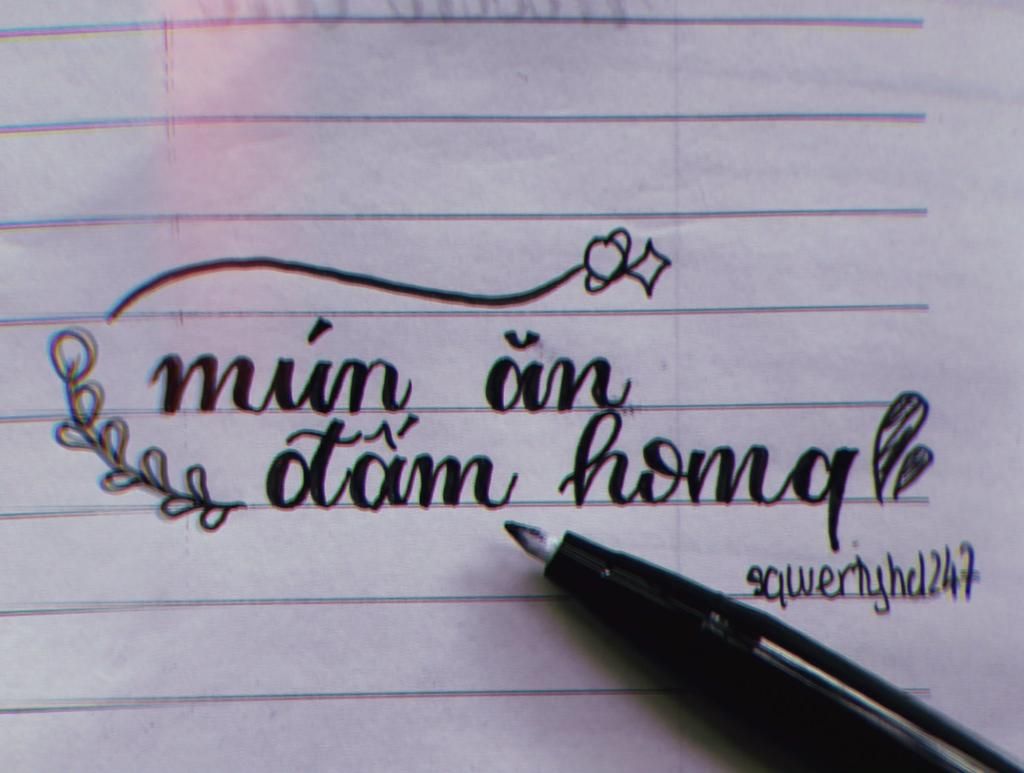 mún ăn
đấm homq
sqwertyhd247